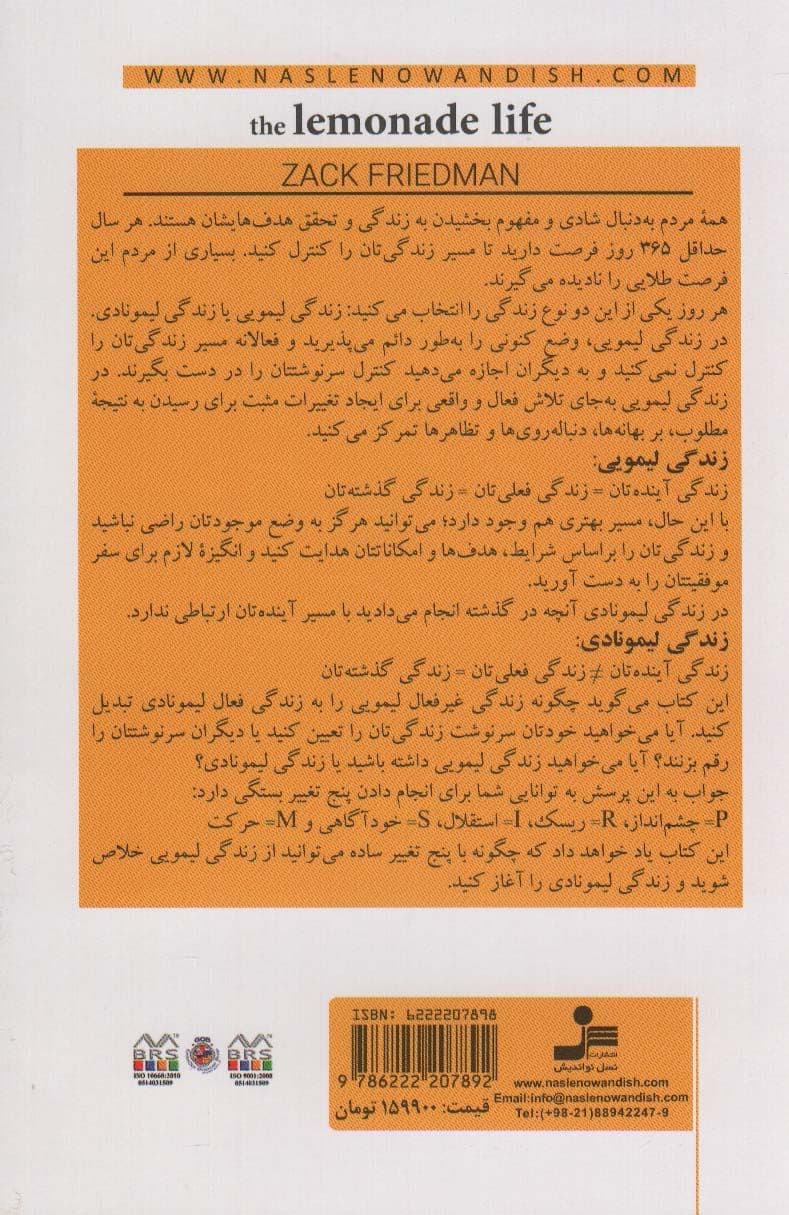 WWW.NASLENOWANDISH.COM
the lemonade life
ZACK FRIEDMAN
همهٔ مردم به‌دنبال شادی و مفهوم بخشیدن به زندگی و تحقق هدف‌هایشان هستند. هر سال
حداقل ۳۶۵ روز فرصت دارید تا مسیر زندگی‌تان را کنترل کنید. بسیاری از مردم این
فرصت طلایی را نادیده می‌گیرند.
هر روز یکی از این دو نوع زندگی را انتخاب می‌کنید: زندگی لیمویی یا زندگی لیمونادی.
در زندگی لیمویی، وضع کنونی را به‌طور دائم می‌پذیرید و فعالانه مسیر زندگی‌تان را
کنترل نمی‌کنید و به دیگران اجازه می‌دهید کنترل سرنوشتتان را در دست بگیرند. در
زندگی لیمویی به‌جای تلاش فعال و واقعی برای ایجاد تغییرات مثبت برای رسیدن به نتیجهٔ
مطلوب، بر بهانه‌ها، دنباله‌روی‌ها و تظاهرها تمرکز می‌کنید.
زندگی لیمویی:
زندگی آینده‌تان = زندگی فعلی‌تان = زندگی گذشته‌تان
با این حال، مسیر بهتری هم وجود دارد؛ می‌توانید هرگز به وضع موجودتان راضی نباشید
و زندگی‌تان را براساس شرایط، هدف‌ها و امکاناتتان هدایت کنید و انگیزهٔ لازم برای سفر
موفقیتتان را به دست آورید.
در زندگی لیمونادی آنچه در گذشته انجام می‌دادید با مسیر آینده‌تان ارتباطی ندارد.
زندگی لیمونادی:
زندگی آینده‌تان ≠ زندگی فعلی‌تان = زندگی گذشته‌تان
این کتاب می‌گوید چگونه زندگی غیرفعال لیمویی را به زندگی فعال لیمونادی تبدیل
کنید. آیا می‌خواهید خودتان سرنوشت زندگی‌تان را تعیین کنید یا دیگران سرنوشتتان را
رقم بزنند؟ آیا می‌خواهید زندگی لیمویی داشته باشید یا زندگی لیمونادی؟
جواب به این پرسش به توانایی شما برای انجام دادن پنج تغییر بستگی دارد:
P= چشم‌انداز، R= ریسک، I= استقلال، S= خودآگاهی و M= حرکت
این کتاب یاد خواهد داد که چگونه با پنج تغییر ساده می‌توانید از زندگی لیمویی خلاص
شوید و زندگی لیمونادی را آغاز کنید.
ISBN: 6222207898
9 786222 207892
قیمت: ۱۵۹۹۰۰ تومان
انتشارات
نسل نواندیش
www.naslenowandish.com
Email:info@naslenowandish.com
Tel:(+98-21)88942247-9
BRS
ISO 10668:2010
0514031509
BRS
ISO 9001:2008
0514031509